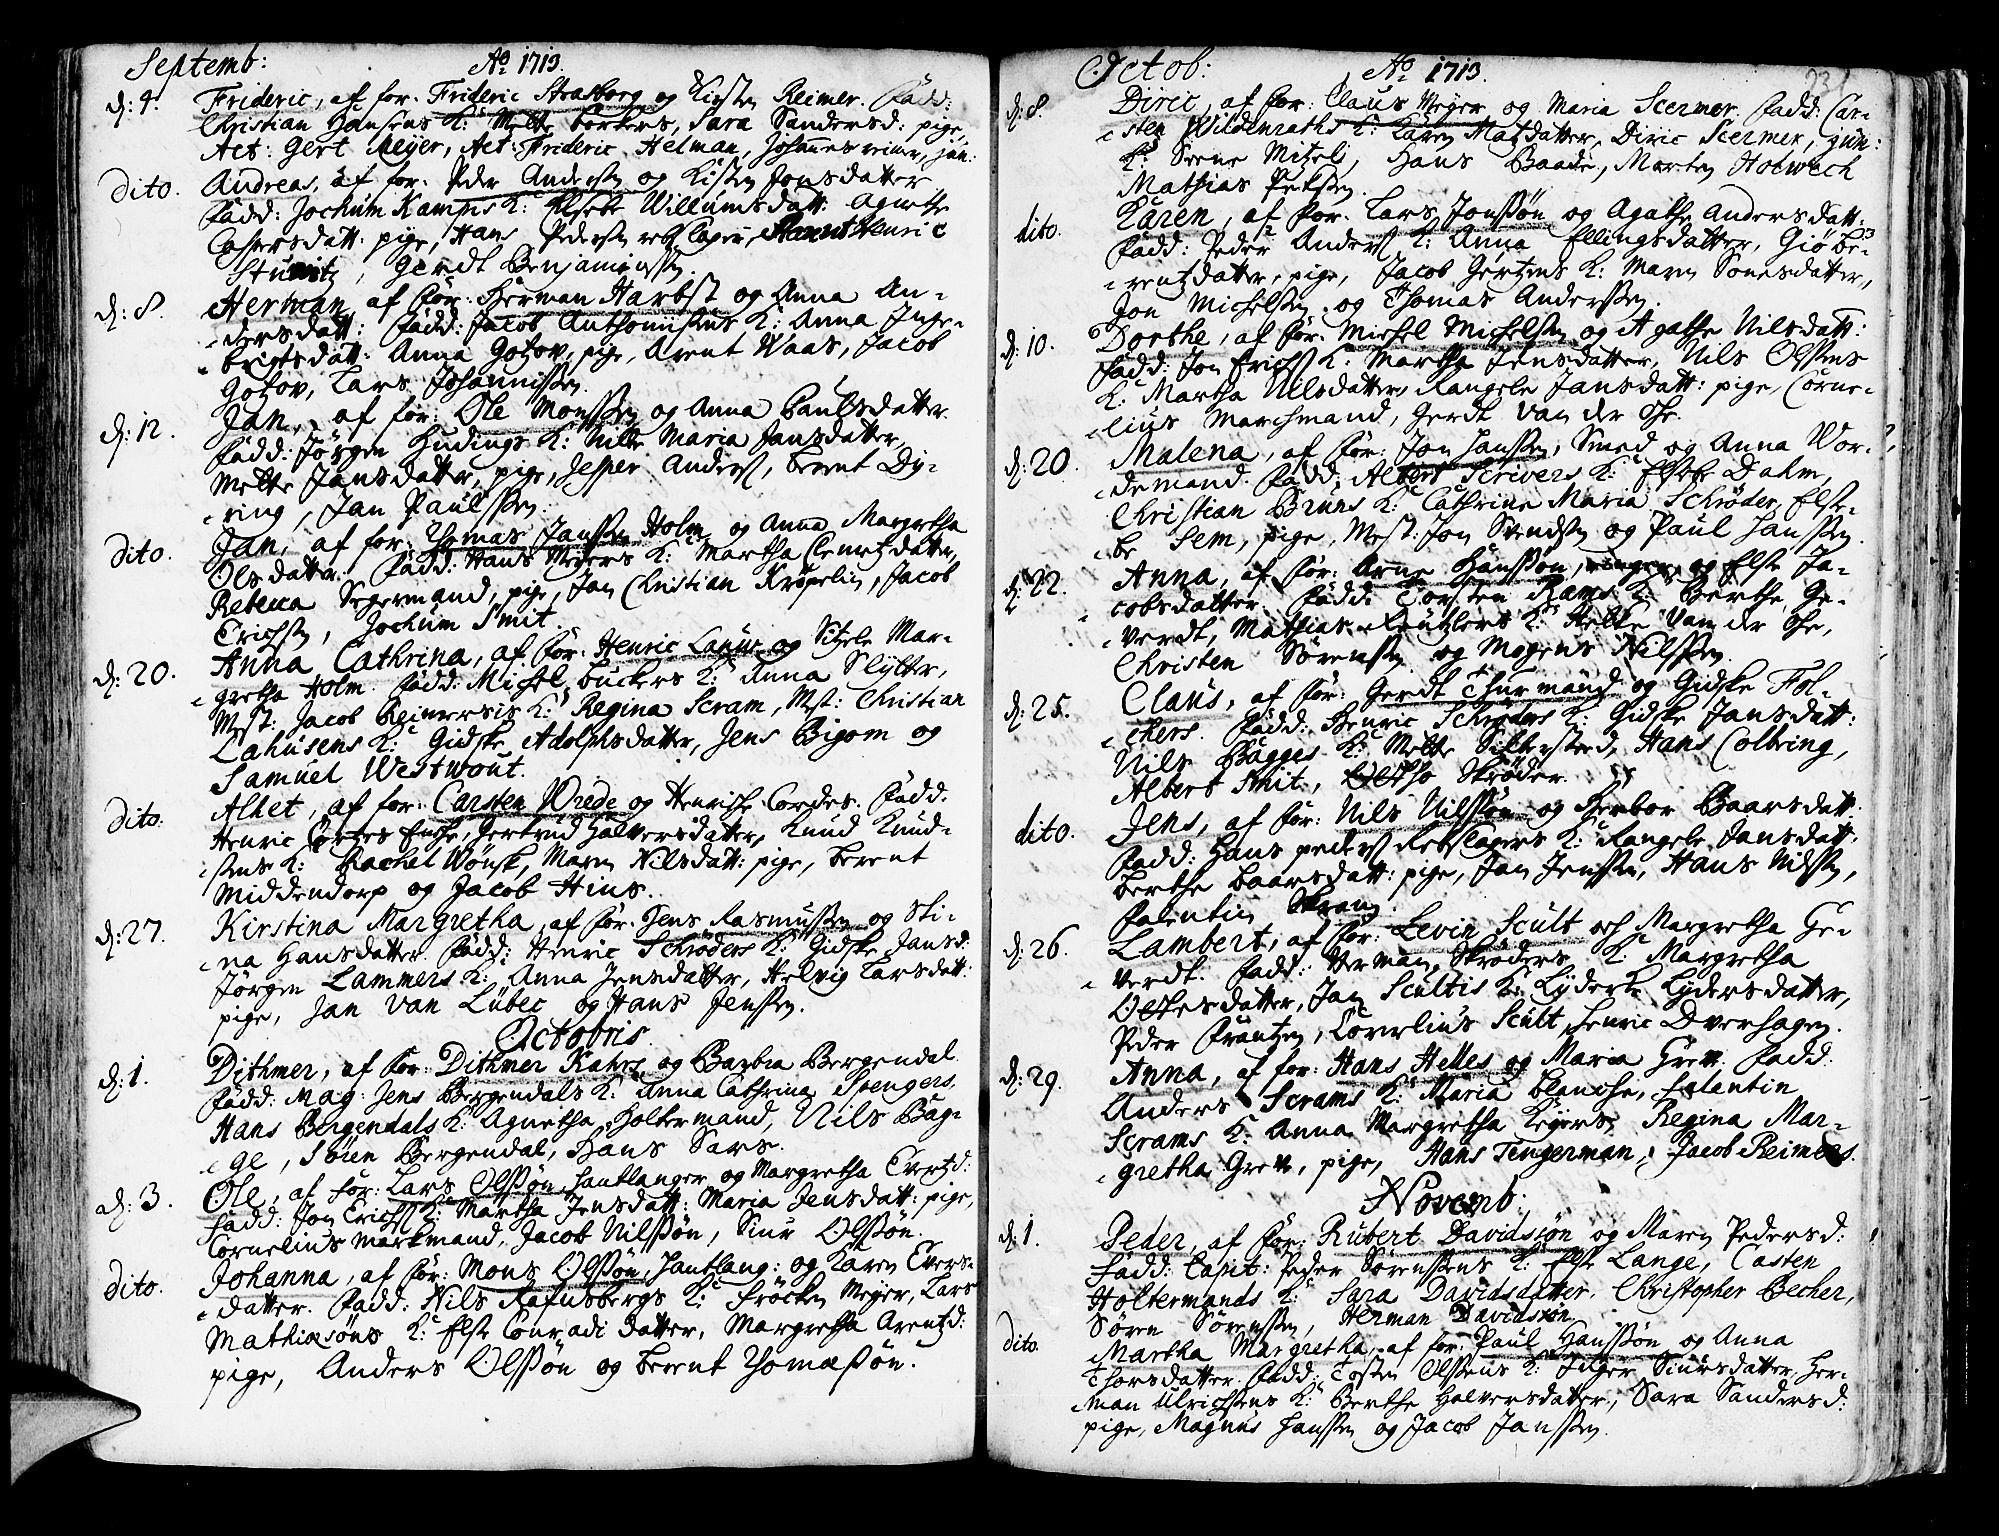 Septemb: Aō 1713.
d: 4. Frideric, af for. Frideric Strasborg og Kirsten Reimer. Fadd:
Christian Hansens K: Mette Børkers, Sara Sandersd: pige,
Act: Gert Meyer, Act: Frideric Helman, Johannes reimer, jun:
dito. Andreas, af for. Peder Anderssen og Kisten Jonsdatter
Fadd: Jochum Kamps K: Elsebe Willumsdatt: Agnette
Caspersdatt: pige, Hans Pederssen Henric
Stuwitz, Gerdt Benjaminssen.
d: 8. Herman, af for: Herman Harbst og Anna An-
dersdatt: Fadd: Jacob Anthonissens K: Anna Inge-
brigtsdatt: Anna Gotzov, pige, Arent Waas, Jacob
Gotzov, Lars Johannissen.
d: 12. Jan, af for: Ole Monssen og Anna Paulsdatter
Fadd: Jørgen Hudings K: Nille Maria Jansdatter,
Mette Jansdatter, pige, Jesper Anderss, berent Dy-
ring, Jan Paulssen.
dito. Jan, af for: Thomas Janssen Holm, og Anna Margretha
Olsdatter. Fadd: Hans Meyers K: Martha Clemetzdatter,
Rebecca Segermand, pige, Jan Christian Kröpelin, Jacob
Erichssen, Jochum Smit.
d: 20. Anna Cathrina, af for: Henric Lauw og Sitzele Mar-
gretha Holm. Fadd: Michel buckers K: Anna Slytter,
Mest: Jacob Reimersis K: Regina Scram, Mest: Christian
Lahusens K: Gidske Adolphsdatter, Jens Bigom og
Samuel Westwout.
dito. Alhet, af for: Carsten Wrede og Henriche Cordes. Fadd:
Henric Cordes Enche, Gertrud Halversdatter, Knud Knud-
sens K: Rachel Wönsk, Maren Nilsdatt: pige, berent
Middendorp og Jacob Hins.
d: 27. Kirstina Margretha, af for: Jens Rasmussen og Sti-
na Hansdatter. Fadd: Henric Schröders K: Gidske Jansd:
Jørgen Lammers K: Anna Jensdatter, Helvig Larsdatt:
pige, Jan van Lübec og Hans Jenssen.
Octobris
d: 1. Dithmer, af for: Dithmer Kahrs og Barbra Bergendal
Fadd: Mag: Jens Bergendals K: Anna Cathrina Spengers,
Hans Bergendals K: Agnetha Holtermand, Nils Bag-
ge, Sören Bergendal, Hans Sars.
d: 3. Ole, af for: Lars Olssøn, Hantlanger og Margretha Evertzd:
Fadd: Jon Erichss K: Martha Jensdatt: Maria Jensdatt: pige,
Cornelius Markmand, Jacob Nilssøn, Siur Olssøn.
dito. Johanna, af for: Mons Olssøn, Hantlang: og Karen Evers-
datter. Fadd: Nils Rafnsbergs K: Frøcken Meyer, Lars
Mathiæsøns K: Else Conradi datter, Margretha Arentzd:
pige, Anders Olssøn og berent Thomæssøn.
Octob: Aō 1713.
d: 8. Diric, af for: Claus Meyer og Maria Scermer, Fadd: Car-
sten Wildenraths K: Karen Matzdatter, Diric Scermer, jun:
K: Seene Mitzels, Hans Baade, Morten Holwech
Mathias Petersen.
dito. Karen, af for. Lars Jonssøn og Agathe Andersdatt:
Fadd: Peder Anderss K: Anna Ellingsdatter, Giø be-
rentzdatter, pige, Jacob Gertzens K: Maren Sonesdatter,
Jon Michelssen og Thomas Anderssen.
d: 10. Dorthe, af for: Michel Michelssen og Agathe Nilsdatt:
Fadd: Jon Erichs K: Martha Jensdatter, Nils Olssens
K: Martha Nilsdatter, Rangele Jansdatt: pige, Corne-
lius Marchmand, Gerdt Van der Ohe.
d: 20. Malena, af for: Jon Janssen, Smed og Anna Wor-
demand. Fadd: Albert Scrivers K: Elsebe Dahm,
Christian Bruns K: Cathrine Maria Schröder, Else-
be Sem, pige, Mest: Jon Svendsen og Paul Janssen.
d: 22. Anna, af for: Arne Hanssøn, og Else Ja-
cobsdatter. Fadd: Torsten Rams K: Berthe Ge-
verdt, Mathias Reutzlers K: Helke Van der Ohe,
Christen Sörenssen og Mogens Nilssen.
d: 25. Claus, af for: Gerdt Thurmand og Gidske Fol-
chers. Fadd: Henric Schröders K: Gidske Jansdatt:
Nils Bagges K: Mette Silkersted, Hans Colbring,
Albert Smit, Oelrho Skröder.
dito. Jens, af for: Nils Nilssøn og Herbor Baarsdatt:
Fadd: Hans pederss Rebslagers K: Rangele Jansdatt:
Berthe baarsdatt: pige, Jan Jenssen, Hans Nilssen,
Falentin Skram.
d: 26. Lambert, af for: Levin Scult och Margretha Ge-
verdt. Fadd: Herman Skröders K: Margretha
Oelkesdatter, Jan Scultis K: Lyderke Lydersdatter,
Peder Frantzen, Cornelius Scult, Henric Dverhagen.
d: 29. Anna, af for: Hans Helles og Maria Grev. Fadd:
Anders Scrams K: Maria Blanche, Falentin
Scrams K: Anna Margretha Keyers, Regina Mar-
gretha Grev, pige, Hans Tengerman, Jacob Reimers.
Novemb:
d: 1. Peder, af for: Rubert Davidsson og Maren Pedersd:
Fadd: Capit: Peder Sörenssens K: Else Lange, Casten
Holtermands K: Sara Davidsdatter, Christopher Becher,
Sören Sörenssen, Herman Davidssøn.
dito. Martha Margretha, af for: Paul Hanssøn og Anna
Thorsdatter. Fadd: Tosten Olssens K: Inger Siursdatter, Her-
man Ulrichsens K: Berthe Halversdatter, Sara Sandersd:
pige, Magnus Hanssen og Jacob Janssen.